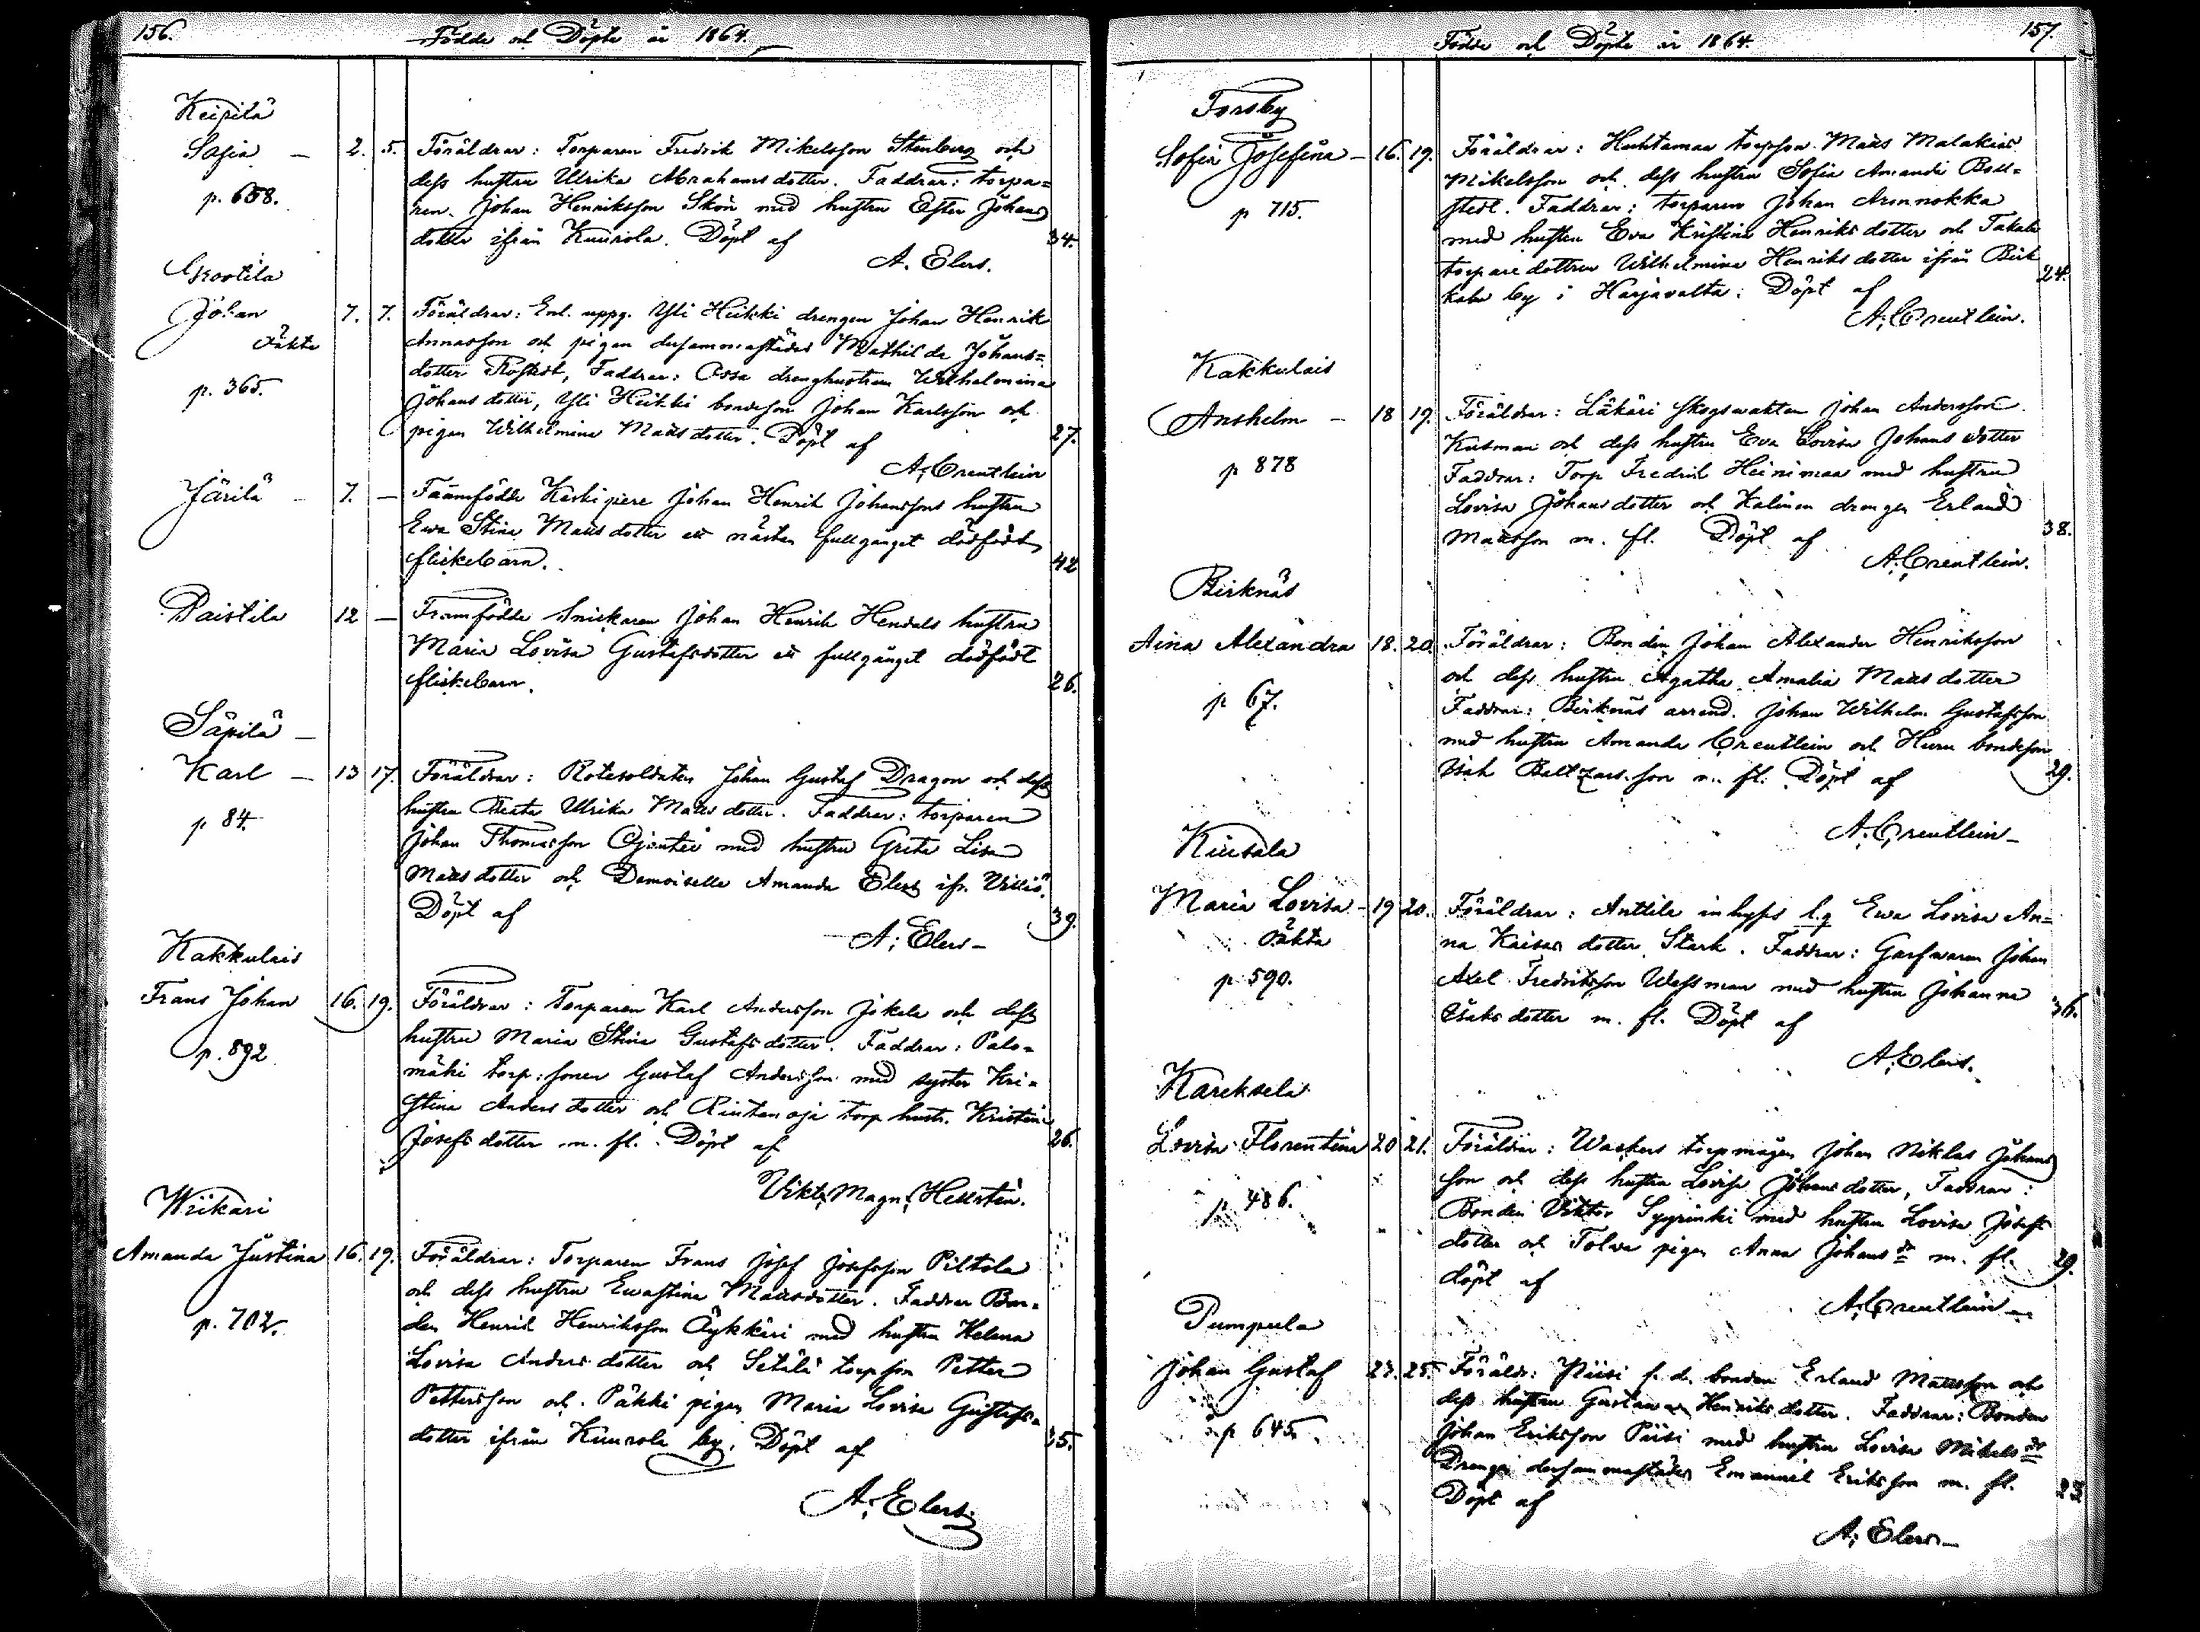 156.
Födde och Döpte år 1864.
Keipilä
Sofia — 2. 5. Föräldrar: Torparen Fredrik Mikelsson Stenberg och
dess hustru Ulrika Abrahamsdotter. Faddrar: torpa=
p. 658.
ren Johan Henriksson Skön med hustru Ester Johans
dotter ifrån Kuurola. Döpt af 34.
A. Elers.
Johan 7. 7. Föräldrar: Enl. uppg. Yli Heikki drengen Johan Henrik
oäkta
Annasson och pigan dersammastädes Mathilda Johans=
p. 365.
dotter, Faddrar: Ossa drenghustrun Wilhelmina
Johansdotter, Yli Heikki bondeson Johan Karlsson och
pigan Wilhelmina Matsdotter. Döpt af 27.
A. Creutlein
Järilä — 7. — Framfödde Keskipere Johan Henrik Johanssons hustru
Ewa Stina Matsdotter ett nästan fullgånget dödfödt
flickebarn. 42
Paistila 12 — Framfödde Snickaren Johan Henrik Hendels hustru
Maria Lovisa Gustafsdotter ett fullgånget dödfödt
flickebarn. 26.
Säpilä —
Karl — 13 17. Föräldrar: Rotesoldaten Johan Gustaf Dragon och dess
p 84.
hustru Beata Ulrika Matsdotter. Faddrar: torparen
Johan Thomasson med hustru Greta Lisa
Matsdotter och Demoiselle Amanda Elers ifr.
Döpt af 39.
A; Elers —
Kakkulais
Frans Johan 16. 19. Föräldrar: Torparen Karl Andersson Jokela och dess
p. 892
hustru Maria Stina Gustafsdotter. Faddrar: Palo=
mäki torp: sonen Gustaf Andersson med syster Kri=
stina Andersdotter och Rintanoja torp hustr. Kristina
Josefsdotter m. fl. Döpt af 26.
Vikt; Magn; Hellstén.
Wiikari
Amanda Justina 16. 19. Föräldrar: Torparen Frans Josef Josefsson Piltola
p. 702.
och dess hustru Ewastina Matsdotter. Faddrar Bon=
den Henrik Henriksson Äykkäri med hustru Helena
Lovisa Andersdotter och Setälä torpson Petter
Pettersson och Päkki pigan Maria Lovisa Gustafs=
dotter ifrån Kuurola by. Döpt af 35.
A; Elers.
157.
Födde och Döpte år 1864.
Forsby
Sofia Josefina — 16. 19. Föräldrar: Huhtamaa torpson Mats Malakias
Mikelsson och dess hustru Sofia Amanda Boll=
p 715.
stedt. Faddrar: torparen Johan Aronnokka
med hustru Eva Kristina Henriksdotter och Takala
torparedottren Wilhelmina Henriksdotter ifrån Pirk
kala by i Harjavalta: Döpt af 24.
A; Creutlein.
Kakkulais
Anshelm — 18 19. Föräldrar: Läkäri skogsvakten Johan Andersson
Kusman och dess hustru Eva Lovisa Johansdotter
p 878
Faddrar: Torp Fredrik Heinimaa med hustru
Lovisa Johansdotter och Kalinen drengen Erland
Matsson m. fl. Döpt af 38.
A. Creutlein.
Birknäs
Aina Alexandra 18. 20. Föräldrar: Bonden Johan Alexander Henriksson
och dess hustru Agatha Amalia Matsdotter
p 67.
Faddrar: Birknäs arrend. Johan Wilhelm Gustafsson
med hustru Amanda Creutlein och Huru bondeson
Isak Baltzarsson m. fl. Döpt af 29.
A; Creutlein —
Kiusala
Maria Lovisa — 19 20. Föräldrar: Anttila inhyss l.q Ewa Lovisa An=
oäkta
na Kaisas dotter Stark. Faddrar: Garfvaren Johan
p 590.
Axel Fredriksson Wessman med hustru Johanna
Isaksdotter m. fl. Döpt af 36.
A; Elers.
Kareksela
Lovisa Florentina 20 21. Föräldrar: Waskers torpmågen Johan Niklas Johans
son och dess hustru Lovisa Johansdotter, Faddrar:
p 486.
Bonden Viktor Syyrinki med hustru Lovisa Josefs
dotter och Tolva pigan Anna Johans dr m. fl. 29.
döpt af
A; Creutlein —
Pumpula
Johan Gustaf 23. 25. Föräldr: Piisi f. d. bonden Erland Matsson och
dess hustru Gustava Henriksdotter. Faddrar: Bonden
p 645.
Johan Eriksson Piisi med hustru Lovisa Mikels dr
Drengen dersammastädes Emanuel Eriksson m. fl. 23
Döpt af
A; Elers —